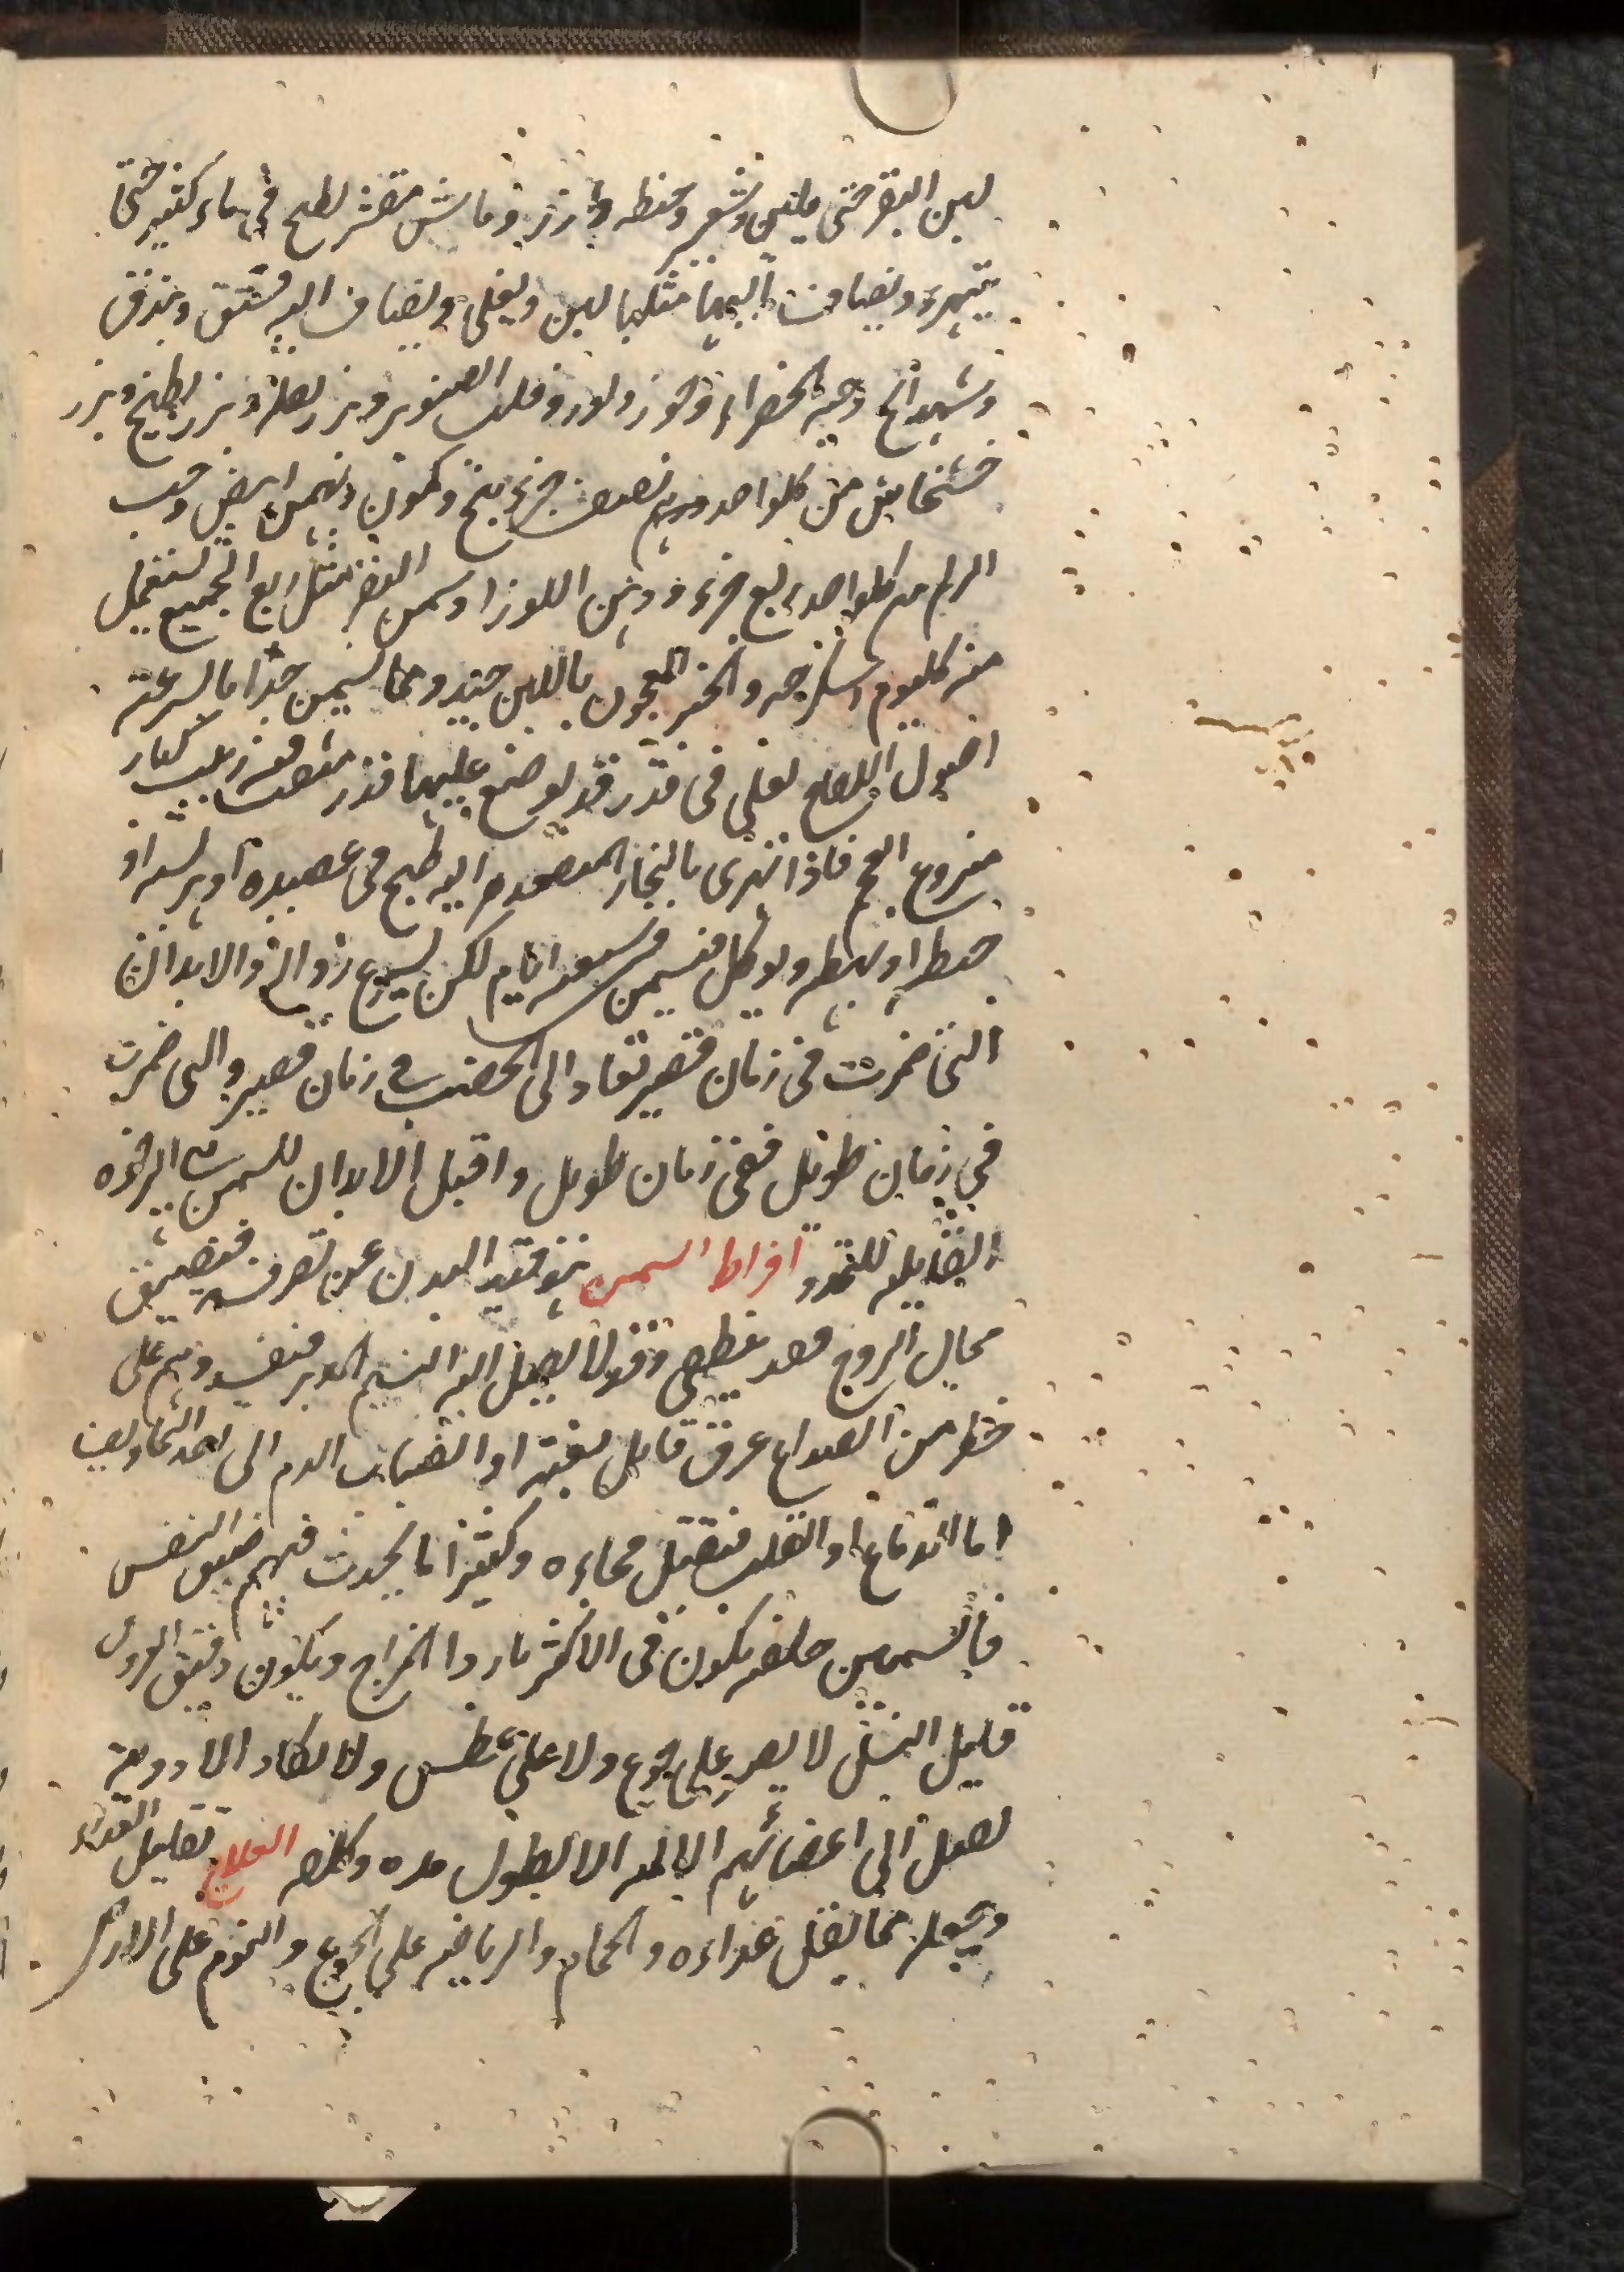 لبن البقر حتى يلين وشعير وحنطه وارز وماش مقشر يطبخ في ماء كثير حتى
يتهرء ويضاف اليها مثلها لبن ويغلى ويضاف اليه فستق وبندق
وشهدانج وحبه الخضراء وجوز ولوز وقلب الصنوبر وبزر بصل وبزر بطيخ وبزر
خشخاش من كلواحد نصف جزء بنج وكمون وبهمن ابيض وحب
الزلم من كلواحد ربع جزء ودهن اللوز او سمن البقر مثل ربع الجميع يستعمل
منه كليوم اسكرجه والخبز المعجون باللبن جيد ومما يسمن جدا بالسرعة
اصول اللفاح يغلى في قدر قد يوضع عليها قدر مثقب فيه زبيب كبار
منزوع العجم فاذا تهرى بالبخار المتصعد اليه طبخ في عصيده او هريسه او
حنطه او بهطه ويوكل فيسمن في سبعه ايام لكن يسرع زواله والابدان
التي ضمرت في زمان قصير تعاد الى الخصب في زمان قصير والتي ضمرت
في زمان طويل ففي زمان طويل واقبل الابدان للسمن الرخوه
القابله للتمدد افراط السمن هو قيد البدن عن تصرفه فيضيق
مجال الروح فقد ينطفي وقد لا يصل اليه النسيم المبرد فيفسد وهم على
خطر من انصداع عرق قاتل بغته او انصباب الدم الى احد التجاويف
اما الدماغ او القلب فيقتل فجاءه وكثيرا ما يحدث فيهم ضيق النفس
فالسمين خلقه يكون في الاكثر بارد المزاج ويكون دقيق العروق
قليل النسل لا يصبر على جوع ولا على عطش ولا يكاد الادويه
تصل الى اعضائهم الالمه الا بطول مده وكلفه العلاج تقليل الغذاء
وجعله مما يقل غذاءه والحمام والرياضه على الجوع والنوم على الارض